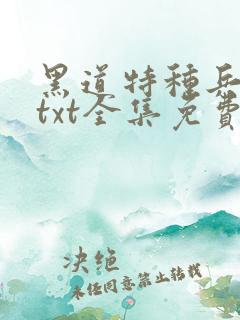 黑道特種兵
txt全集免費
决绝
未经同意禁止转载